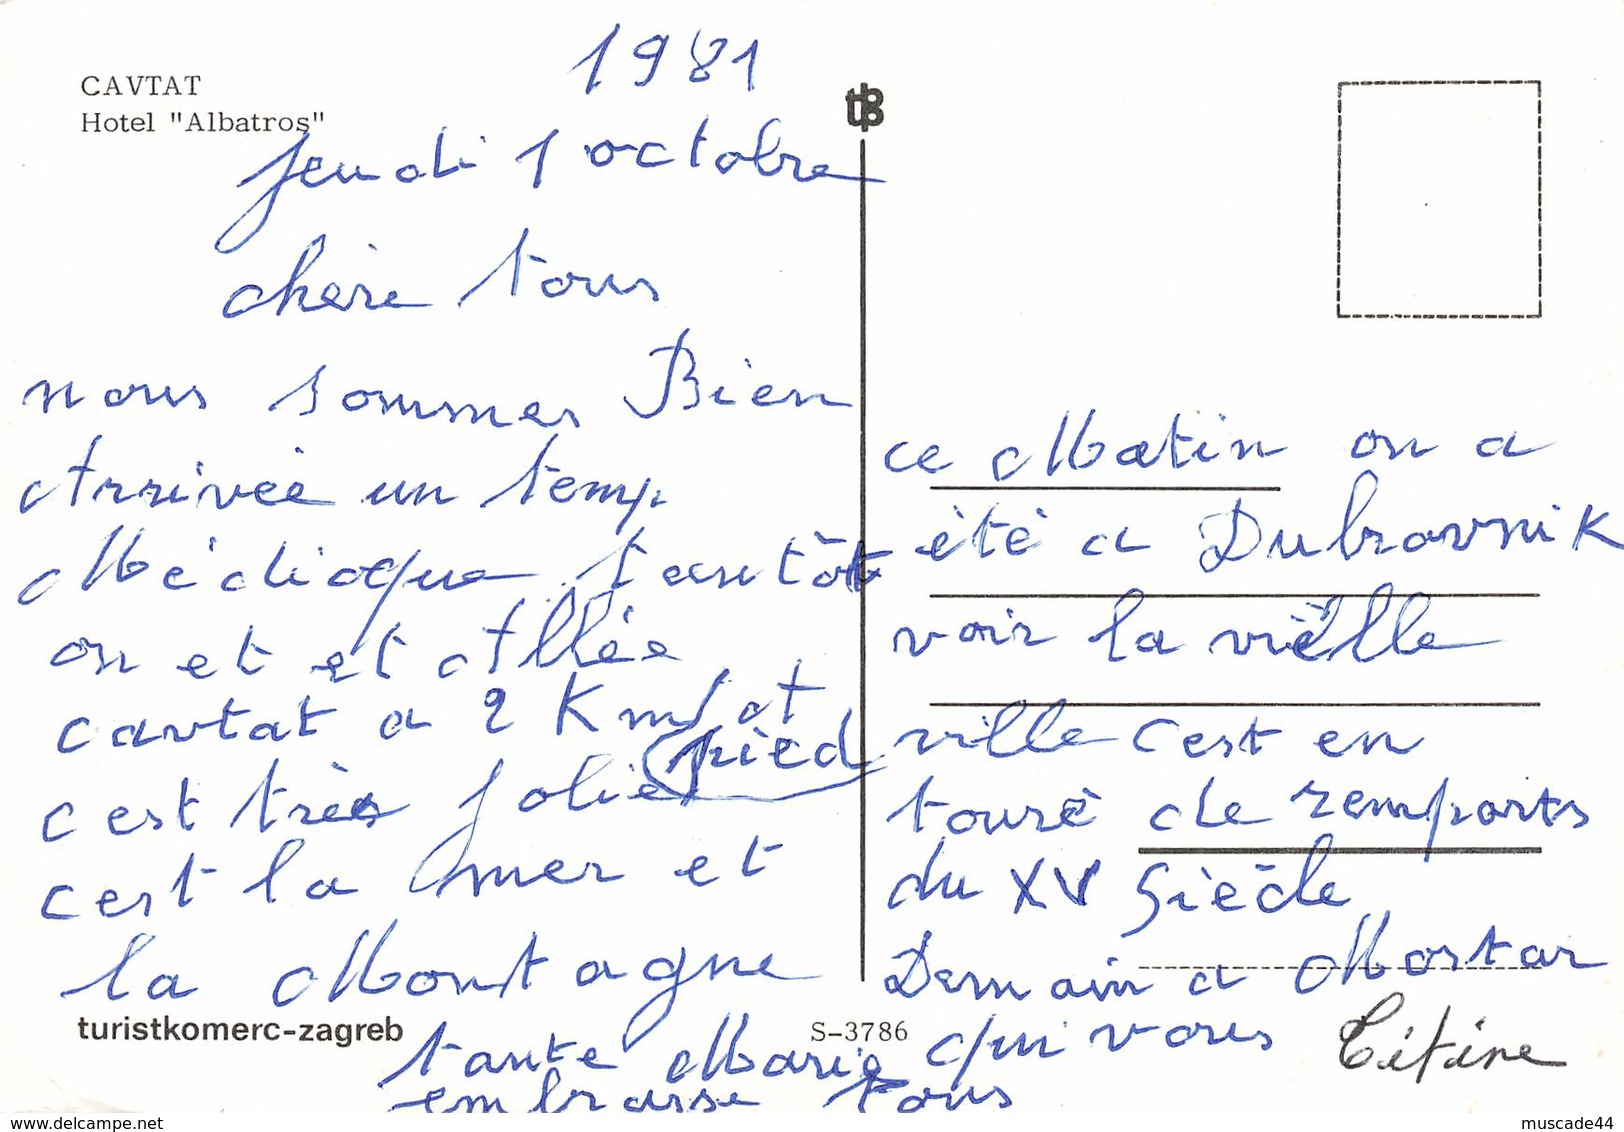 1981
CAVTAT
Hotel "Albatros"
jeudi 1 octobre
chère tous
nous sommes Bien
Arrivée un temp
Médioque tantôt
on et et Allée
cavtat a 2 Km/at
pied
c est très jolie
c est la mer et
la Montagne
ce Matin on a
été a Dubrovnik
voir la vièlle
ville c est en
touré de remports
du XV Siècle
Demain a Mostar
turistkomerc-zagreb
S-3786
tante Marie qui vous
embrasse tous
Titine
delcampe.net
muscade44